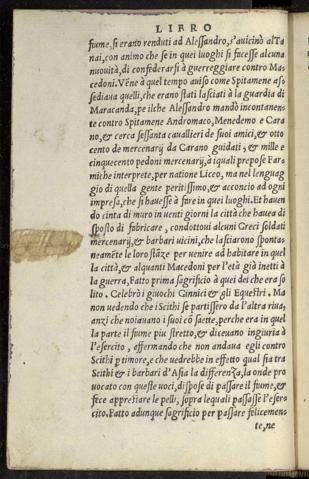 LIBRO
fiume, si erano renduti ad Alessandro, s'auicinò al Ta
nai, con animo che se in quei luoghi si facesse alcuna
nuouità, di confederarsi à guerreggiare contro Ma-
cedoni. Vẽne à quel tempo auiso come Spitamene as-
sediaua quelli, che erano stati lasciati à la guardia di
Maracanda, pe ilche Alessandro mandò incontanen-
te contro Spitamene Andromaco, Menedemo e Cara
no, & cerca sessanta cauallieri de suoi amici, & otto
cento de mercenarij da Carano guidati, & mille e
cinquecento pedoni mercenarij, à iquali prepose Far-
miche interprete, per natione Liceo, ma nel lenguag
gio di quella gente peritissimo, & acconcio ad ogni
impresa, che si hauesse à fare in quei luoghi. Et hauen
do cinta di muro in uenti giorni la città che hauea di
sposto di fabricare, condottoui alcuni Greci soldati
mercenarij, & barbari uicini, che lasciarono sponta-
neamẽte le loro stãze per uenire ad habitare in quel
la città, & alquanti Macedoni per l'età già inetti à
la guerra, Fatto prima sagrificio à quei dei che era so
lito. Celebrò i giuochi Ginnici & gli Equestri. Ma
non uedendo che i Scithi se partissero da l'altra riua,
anzi che noiauano i suoi cõ saette, perche era in quel
la parte il fiume piu stretto, & diceuano ingiuria à
l'esercito, affermando che non andaua egli contro
Scithi p timore, e che uedrebbe in effetto qual sia tra
Scithi & i barbari d'Asia la differenza, la onde pro
uocato con queste uoci, dispose di passare il fiume, &
fece apprestare le pelli, sopra lequali passasse l'eser-
cito. Fatto adunque sagrificio per passare felicemen-
te, ne